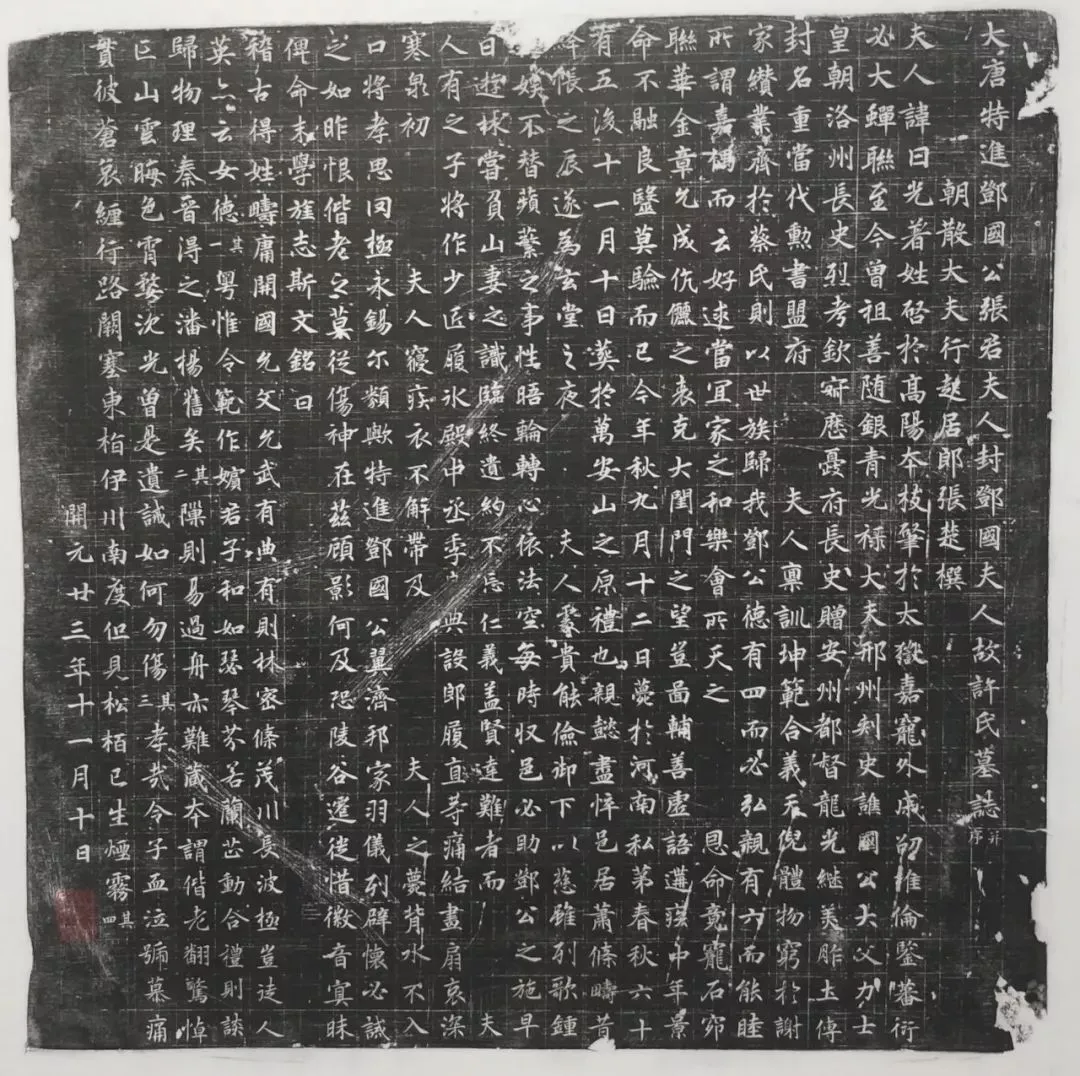 大唐特進鄧國公張君夫人封鄧國夫人故許氏墓誌并序
朝散大夫行起居郎張楚撰
夫人諱曰光著姓啓於高陽夲枝肇於太嶽嘉寵外戚初惟倫鑒蕃衍
必大蟬聯至今曾祖善隨銀青光祿大夫邢州刾史譙國公大父力士
皇朝洛州長史烈考欽寂應憂府長史贈安州都督龍光継美胙土傳
封名重當代勲書盟府 夫人禀訓坤範合義天倪體物窮於謝
家纘業齊於蔡氏則以世族歸我鄧公德有四而必弘親有六而能睦
所謂嘉耦而云好逑當宜家之和樂會所天之 恩命竟寵石窌
聯華金章允成伉儷之表克大閨門之望豈啚輔善虛語遘痎中年景
命不融良毉莫驗而已今年秋九月十二日薨於河南私第春秋六十
有五浚十一月十日葬於萬安山之原禮也親懿盡悴邑居蕭條疇昔
帳之辰遂為玄堂之夜 夫人冢貴能儉御下以慈雖列歌鍾
娛不替蘋蘩之事性晤輪轉心依法空每時収邑必助鄧公之施早
日遊林嘗負山妻之識臨終遺約不忘仁義盖賢達難者而 夫
人有之子將作少匠履冰殿中丞季 典設郎履直等痛結畫扇哀深
寒泉初 夫人寢疾衣不解帶及 夫人之薨背水不入
口將孝思罔極永錫尔類歟特進鄧國公翼濟邦家羽儀列辟懷必誠
之如昨恨偕老之莫從傷神在茲顧影何及恐陵谷遷徙惜徽音寘昧
俾命末學旌志斯文銘曰
稽古得姓疇庸開國允文允武有典有則林密條茂川長波極豈徒人
英亦云女德其一粵惟令範作嬪君子和如瑟琴芬若蘭芷動合禮則談
歸物理秦晉淂之潘楊舊矣其二隟則易過舟亦難藏夲謂偕老翻驚悼
亡山雲晦色霄婺沈光曾是遺誡如何勿傷其三孝㢤令子血泣號慕痛
貫彼蒼哀纏行路闕塞東栢伊川南度但見松栢已生煙霧其四
開元廿三年十一月十日